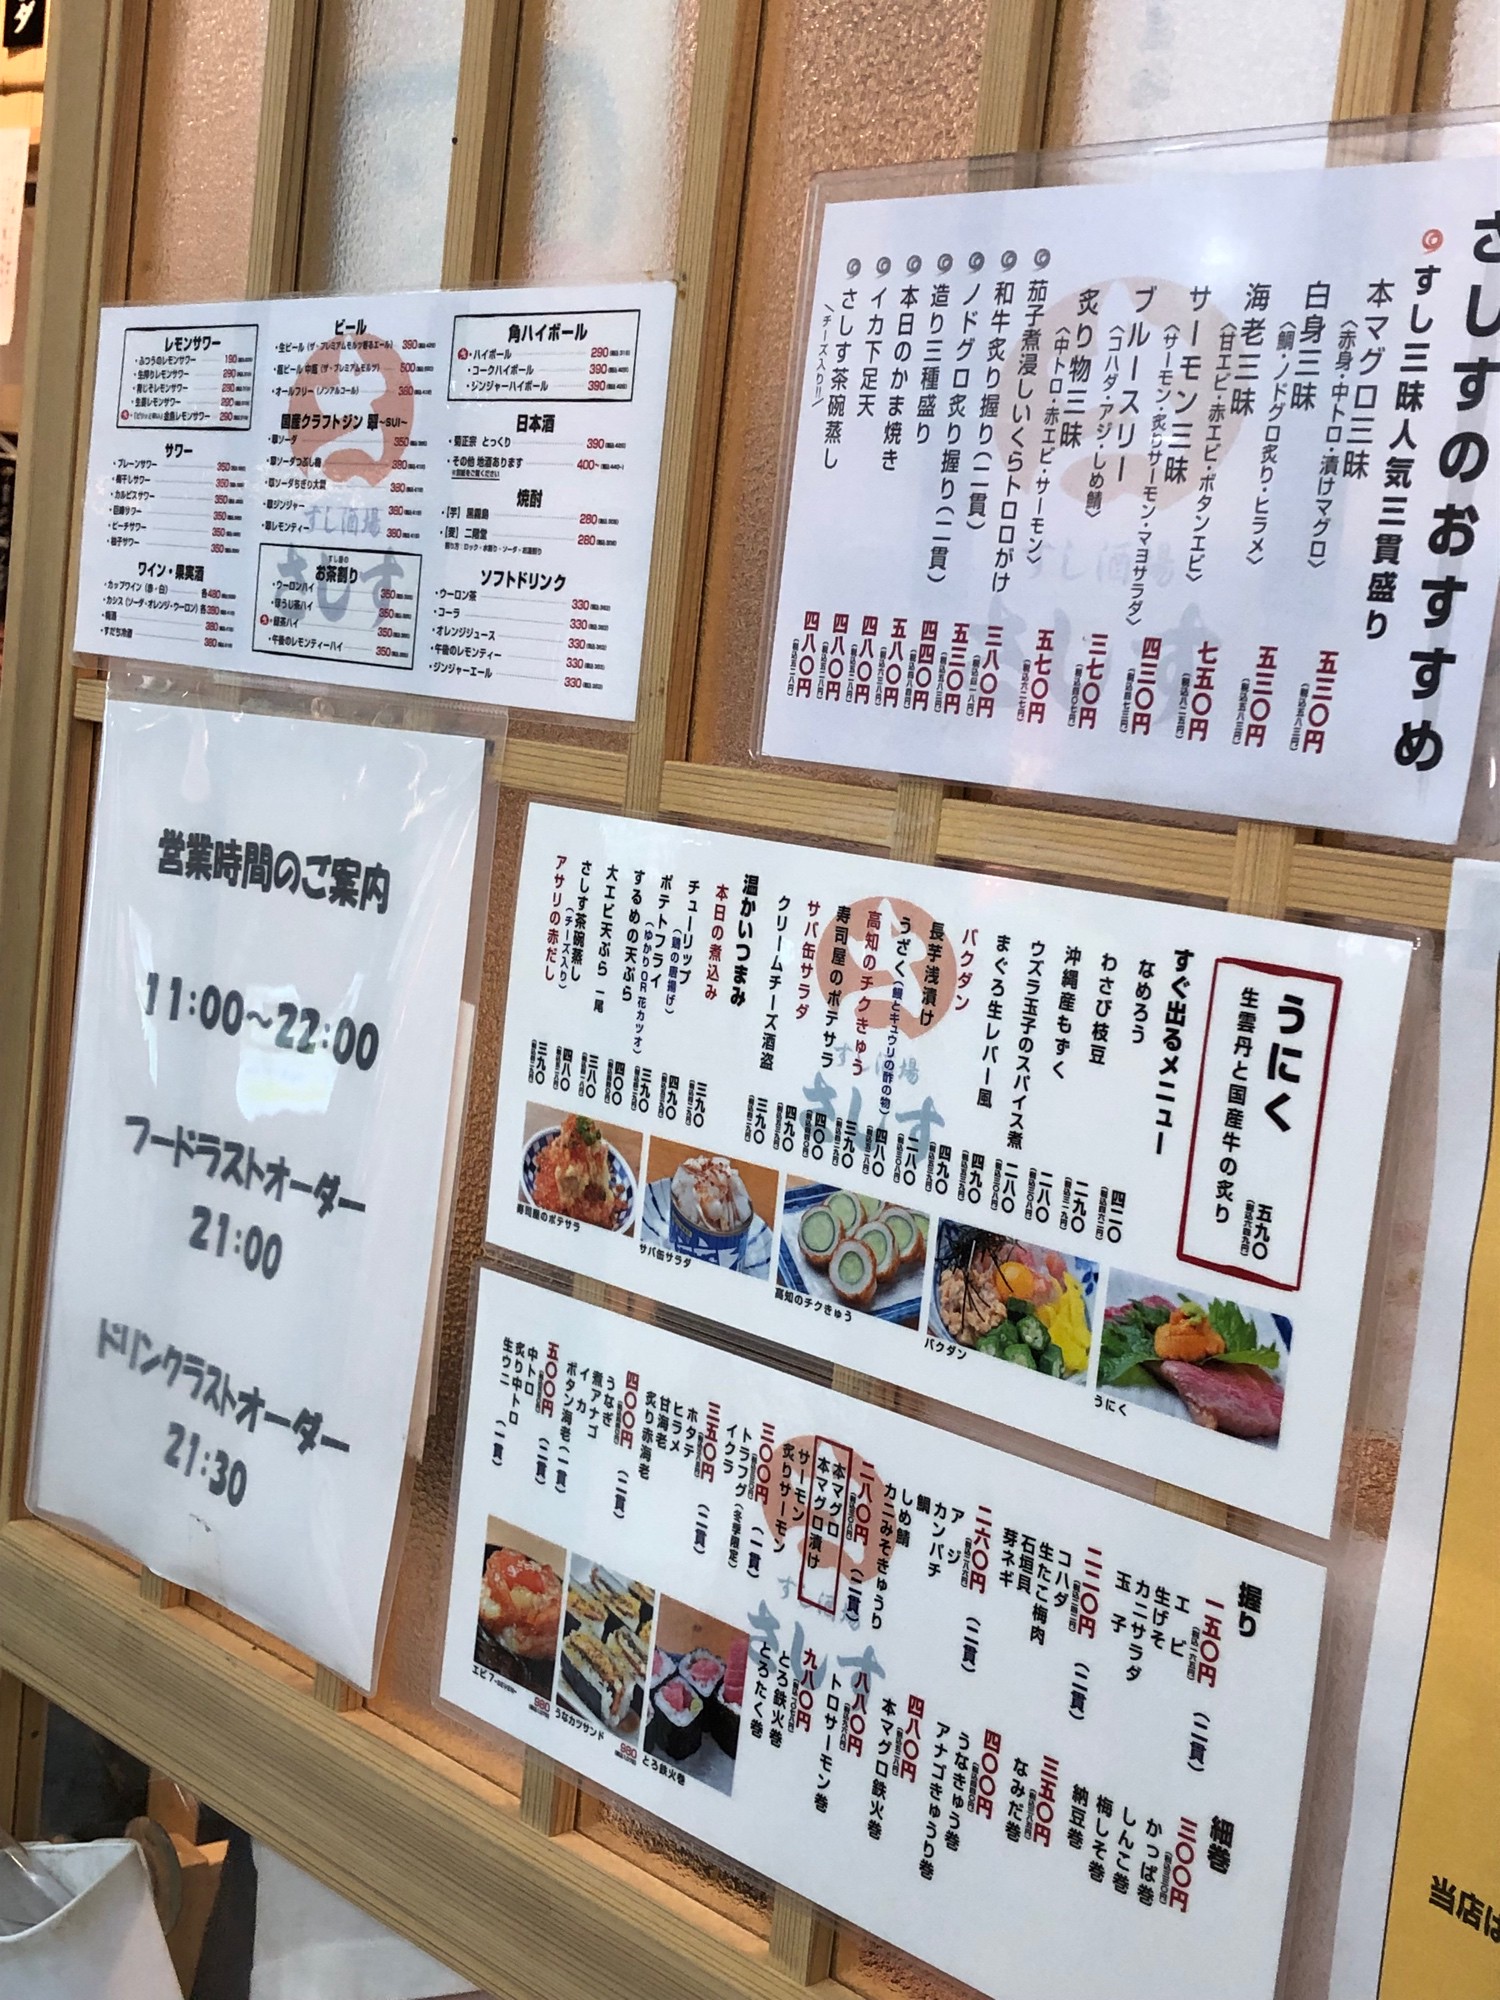 レモンサワー
・ふつうのレモンサワー 190
・生搾りレモンサワー 290
・青じそレモンサワー 290
・生姜レモンサワー 290
金魚レモンサワー 290
サワー
・プレーンサワー 350
・梅干しサワー 350
・カルピスサワー 350
・巨峰サワー 350
・ピーチサワー 350
・柚子サワー 350
ワイン・果実酒
・カップワイン(赤・白) 各480
・カシス(ソーダ・オレンジ・ウーロン) 各380
・梅酒 380
・すだち冷酒 380
ビール
・生ビール(ザ・プレミアムモルツ香るエール) 390
・瓶ビール 中瓶(ザ・プレミアムモルツ) 500
・オールフリー(ノンアルコール) 380
国産クラフトジン 翠~SUI~
・翠ソーダ 350
・翠ソーダつぶし梅 380
・翠ソーダちぎり大葉 380
・翠ジンジャー 380
・翠レモンティー 380
お茶割り
・ウーロンハイ 350
・ほうじ茶ハイ 350
・緑茶ハイ 350
・午後のレモンティーハイ 350
角ハイボール
・ハイボール 290
・コークハイボール 390
・ジンジャーハイボール 390
日本酒
・菊正宗 とっくり 390
・その他 地酒あります 400~
※別紙をご覧ください
焼酎
・【芋】黒霧島 280
・【麦】二階堂 280
割り方:ロック・水割り・ソーダ・お湯割り
ソフトドリンク
・ウーロン茶 330
・コーラ 330
・オレンジジュース 330
・午後のレモンティー 330
・ジンジャーエール 330
さしすのおすすめ
すし三昧人気三貫盛り
本マグロ三昧
〈赤身・中トロ・漬けマグロ〉
五三〇円
白身三昧
〈鯛・ノドグロ炙り・ヒラメ〉
五三〇円
海老三昧
〈甘エビ・赤エビ・ボタンエビ〉
七五〇円
サーモン三昧
〈サーモン・炙りサーモン・マヨサラダ〉
四三〇円
ブルースリー
〈コハダ・アジ・しめ鯖〉
三七〇円
炙り物三昧
〈中トロ・赤エビ・サーモン〉
五七〇円
茄子煮浸しいくらトロロがけ
三八〇円
和牛炙り握り(二貫)
五三〇円
ノドグロ炙り握り(二貫)
四四〇円
造り三種盛り
五八〇円
本日のかま焼き
四八〇円
イカ下足天
四八〇円
さしす茶碗蒸し
\チーズ入り!!/
四八〇円
すし酒場
さしす
営業時間のご案内
11:00~22:00
フードラストオーダー
21:00
ドリンクラストオーダー
21:30
うにく
生雲丹と国産牛の炙り
五九〇
すぐ出るメニュー
なめろう 四二〇
わさび枝豆 二九〇
沖縄産もずく 二八〇
ウズラ玉子のスパイス煮 二八〇
まぐろ生レバー風 四九〇
バクダン 四九〇
長芋浅漬け 二八〇
うざく(鰻とキュウリの酢の物) 四八〇
高知のチクきゅう 三九〇
寿司屋のポテサラ 四〇〇
サバ缶サラダ 四九〇
クリームチーズ酒盗 三九〇
温かいつまみ
本日の煮込み 三九〇
チューリップ
(鶏の唐揚げ) 四九〇
ポテトフライ
(ゆかりOR花カツオ) 三九〇
するめの天ぷら 四〇〇
大エビ天ぷら 一尾 三八〇
さしす茶碗蒸し
(チーズ入り) 四八〇
アサリの赤だし 三九〇
すし酒場
さしす
寿司屋のポテサラ
サバ缶サラダ
高知のチクきゅう
バクダン
うにく
握り
一五〇円(二貫)
エビ
生げそ
カニサラダ
玉子
二二〇円(二貫)
コハダ
生たこ梅肉
石垣貝
芽ネギ
二六〇円(二貫)
アジ
カンパチ
鯛
しめ鯖
カニみそきゅうり
二八〇円(二貫)
本マグロ
本マグロ漬け
サーモン
炙りサーモン
三〇〇円(一貫)
トラフグ(冬季限定)
イクラ
三五〇円(二貫)
ホタテ
ヒラメ
甘海老
炙り赤海老
四〇〇円(二貫)
うなぎ
煮アナゴ
イカ
ボタン海老(一貫)
五〇〇円(二貫)
中トロ
炙り中トロ
生ウニ(一貫)
細巻
三〇〇円
かっぱ巻
しんこ巻
梅しそ巻
納豆巻
三五〇円
なみだ巻
四〇〇円
うなきゅう巻
アナゴきゅうり巻
四八〇円
本マグロ鉄火巻
八八〇円
トロサーモン巻
九八〇円
とろ鉄火巻
とろたく巻
すし酒場
さしす
エビ7
980
うなカツサンド
980
とろ鉄火巻
当店は